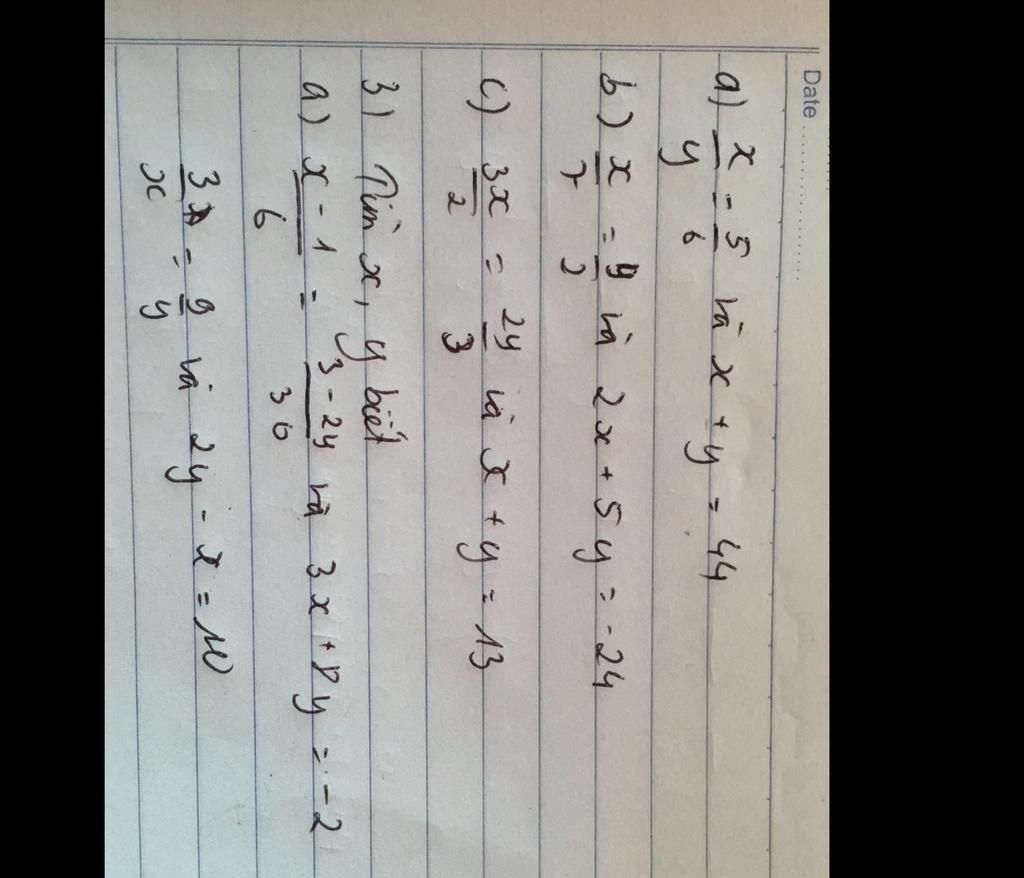 Date
a) x/y = 5/6 và x + y = 44
b) x/7 = y/2 và 2x + 5y = -24
c) 3x/2 = 2y/3 và x + y = 13
3) Tìm x, y biết
a) x - 1/6 = 3 - 2y/30 và 3x + 8y = -2
3/x = 9/y và 2y - x = 10